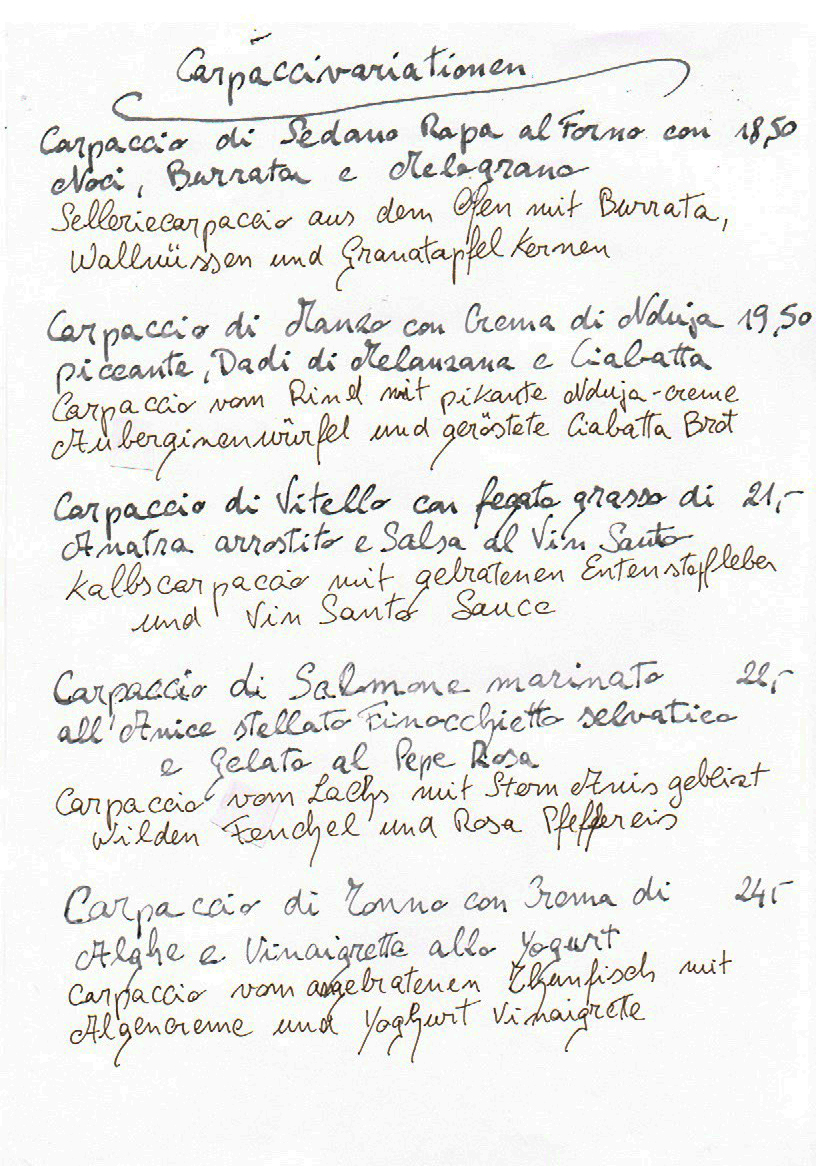 Carpaccivariationen
Carpaccio di Sedano Rapa al Forno con 18,50
Noci, Burrata e Melograno
Selleriecarpaccio aus dem Ofen mit Burrata,
Wallnüssen und Granatapfel Kernen
Carpaccio di Manzo con Crema di Nduja 19,50
piccante, Dadi di Melanzana e Ciabatta
Carpaccio vom Rind mit pikante Nduja-creme
Auberginenwürfel und geröstete Ciabatta Brot
Carpaccio di Vitello con fegato grasso di 21,-
Anatra arrostito e Salsa al Vin Santo
Kalbscarpaccio mit gebratenen Entenstopfleber
und Vin Santo Sauce
Carpaccio di Salmone marinato 22,-
all'Anice stellato Finocchietto selvatico
e Gelato al Pepe Rosa
Carpaccio vom Lachs mit Stern Anis gebeizt
Wilden Fenchel und Rosa Pfeffereis
Carpaccio di Tonno con Crema di 24,-
Alghe e Vinaigrette allo Yogurt
Carpaccio vom angebratenen Thunfisch mit
Algencreme und Yoghurt Vinaigrete